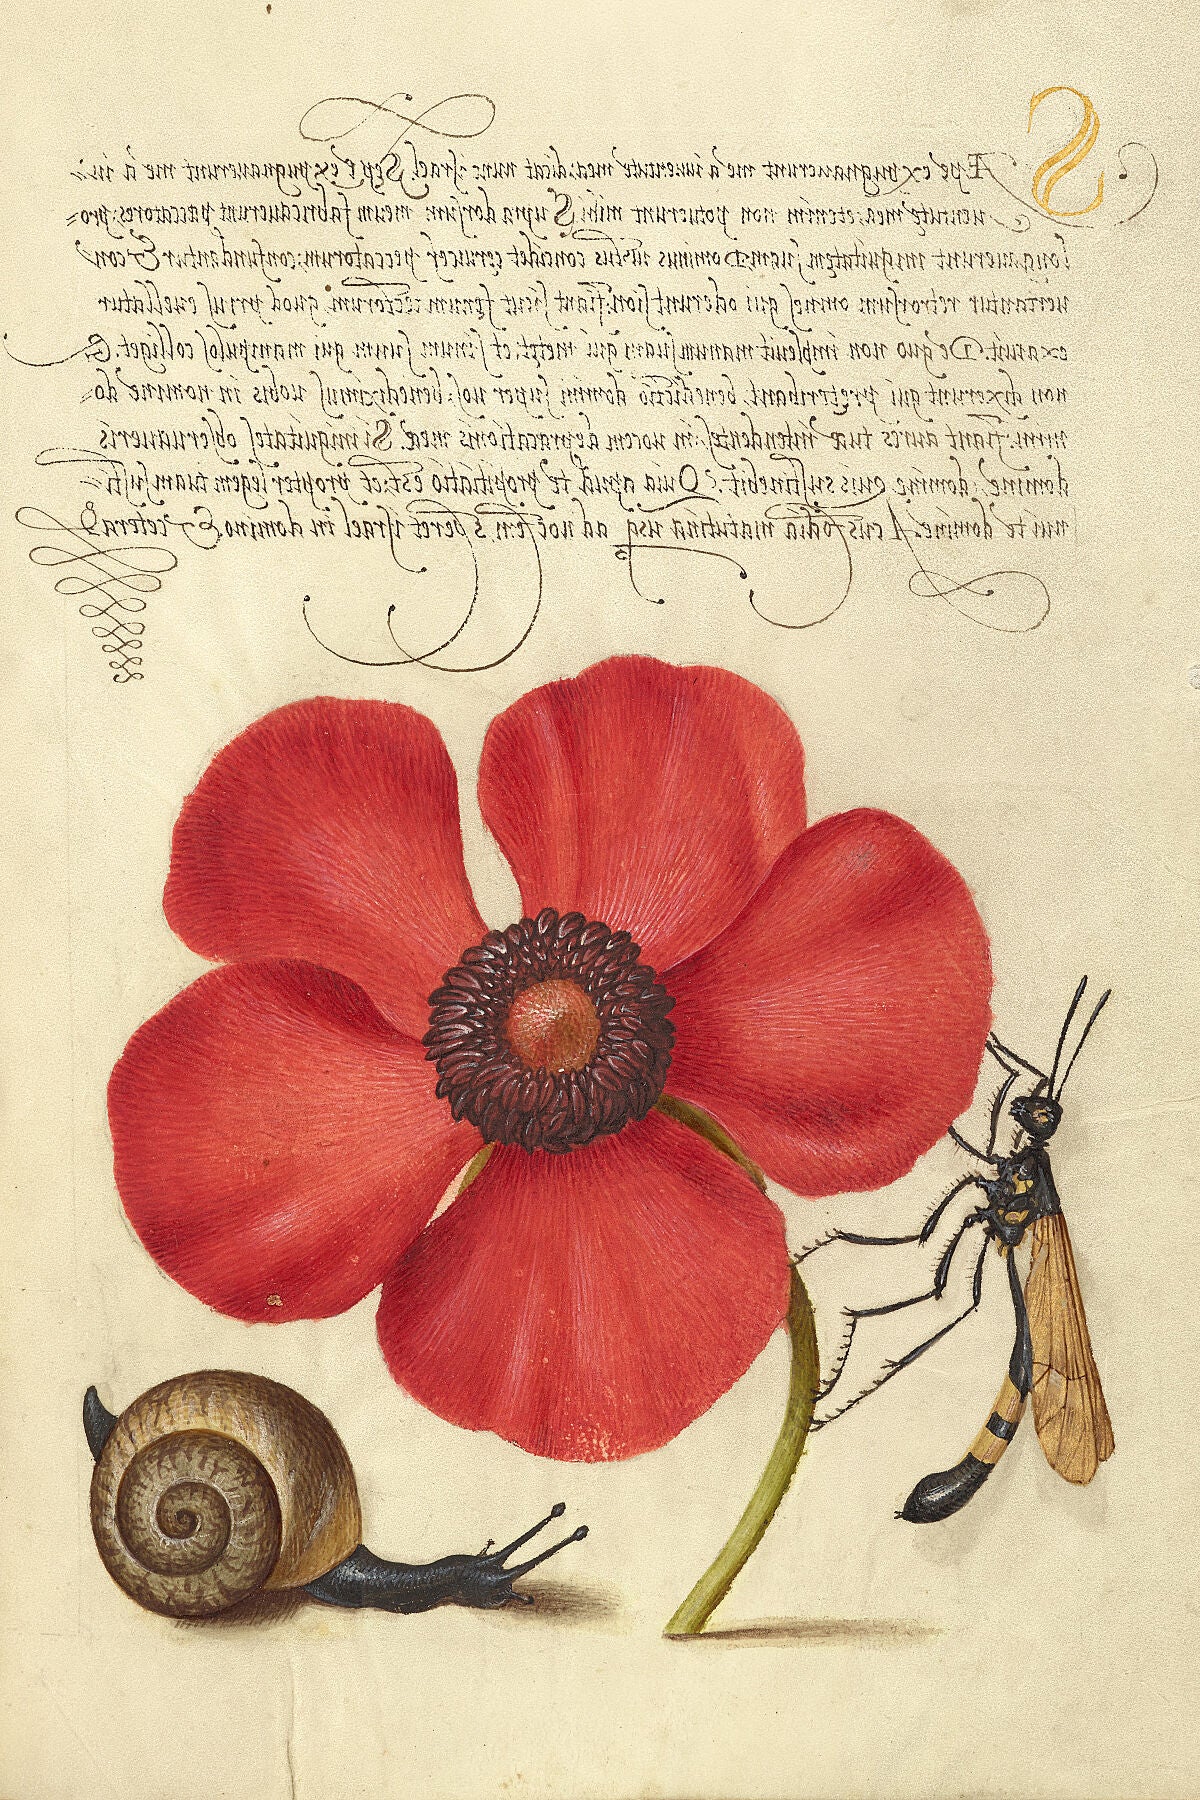 SÆpe expugnauerunt me à iuuentute mea: dicat nunc israel. Sepe expugnauerunt me à iu=
uentute mea: etenim non potuerunt mihi. Supra dorsum meum fabricauerunt pæccatores: pro=
longauerunt iniquitatem suam. Dominus iustus concidet ceruices peccatorum: confundantur & con
uertantur retrorsum omnes qui oderunt sion. fiant sicut fenum tectorum, quod prius euellatur
exaruit. De quo non impleuit manum suam qui metet: et sinum suum qui manipulos colliget. Et
non dixerunt qui preteribant, benedictio domini super uos: benediximus uobis in nomine do=
mini. fiant aures tuæ intendentes: in uocem depræcationis meæ. Si iniquitates obseruaueris
domine: domine quis sustinebit? Quia apud te propitiatio est: et propter legem tuam susti=
nui te domine. A custodia matutina usq ad noctem, speret israel in domino. & cetera